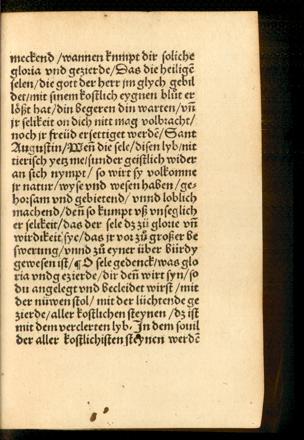 meckend /wannen kumpt dir soliche
gloria vnd gezierde/Das die heiligē
selen/die gott der herr jm glych gebil
det/mit sinem kostlich eygnen blůt er
lößt hat/din begeren din warten/vñ
jr selikeit on dich nitt mag volbracht/
noch jr freüd ersettiget werdē/Sant
Augustin/Weñ die sele/disen lyb/nit
tierisch yetz me/sunder geistlich wider
an sich nympt/ so wirt sy volkomne
jr natur/wyse vnd wesen haben/ge⸗
horsam vnd gebietend/ vnnd loblich
machend/deñ so kumpt vß vnseglich
er selikeit/das der sele dz zü glorie vñ
wirdikeit sye/das jr vor zů großer be
swerung/vnnd zů eyner über bürdy
gewesen ist/¶ O sele gedenck/was glo
ria vnd gezierde/dir deñ wirt syn/so
du angelegt vnd becleidet wirst/mit
der nüwen stol/ mit der lüchtende ge
zierde/aller kostlichen steynen /dz ist
mit dem verclerten lyb. In dem souil
der aller kostlichisten steynen werdē